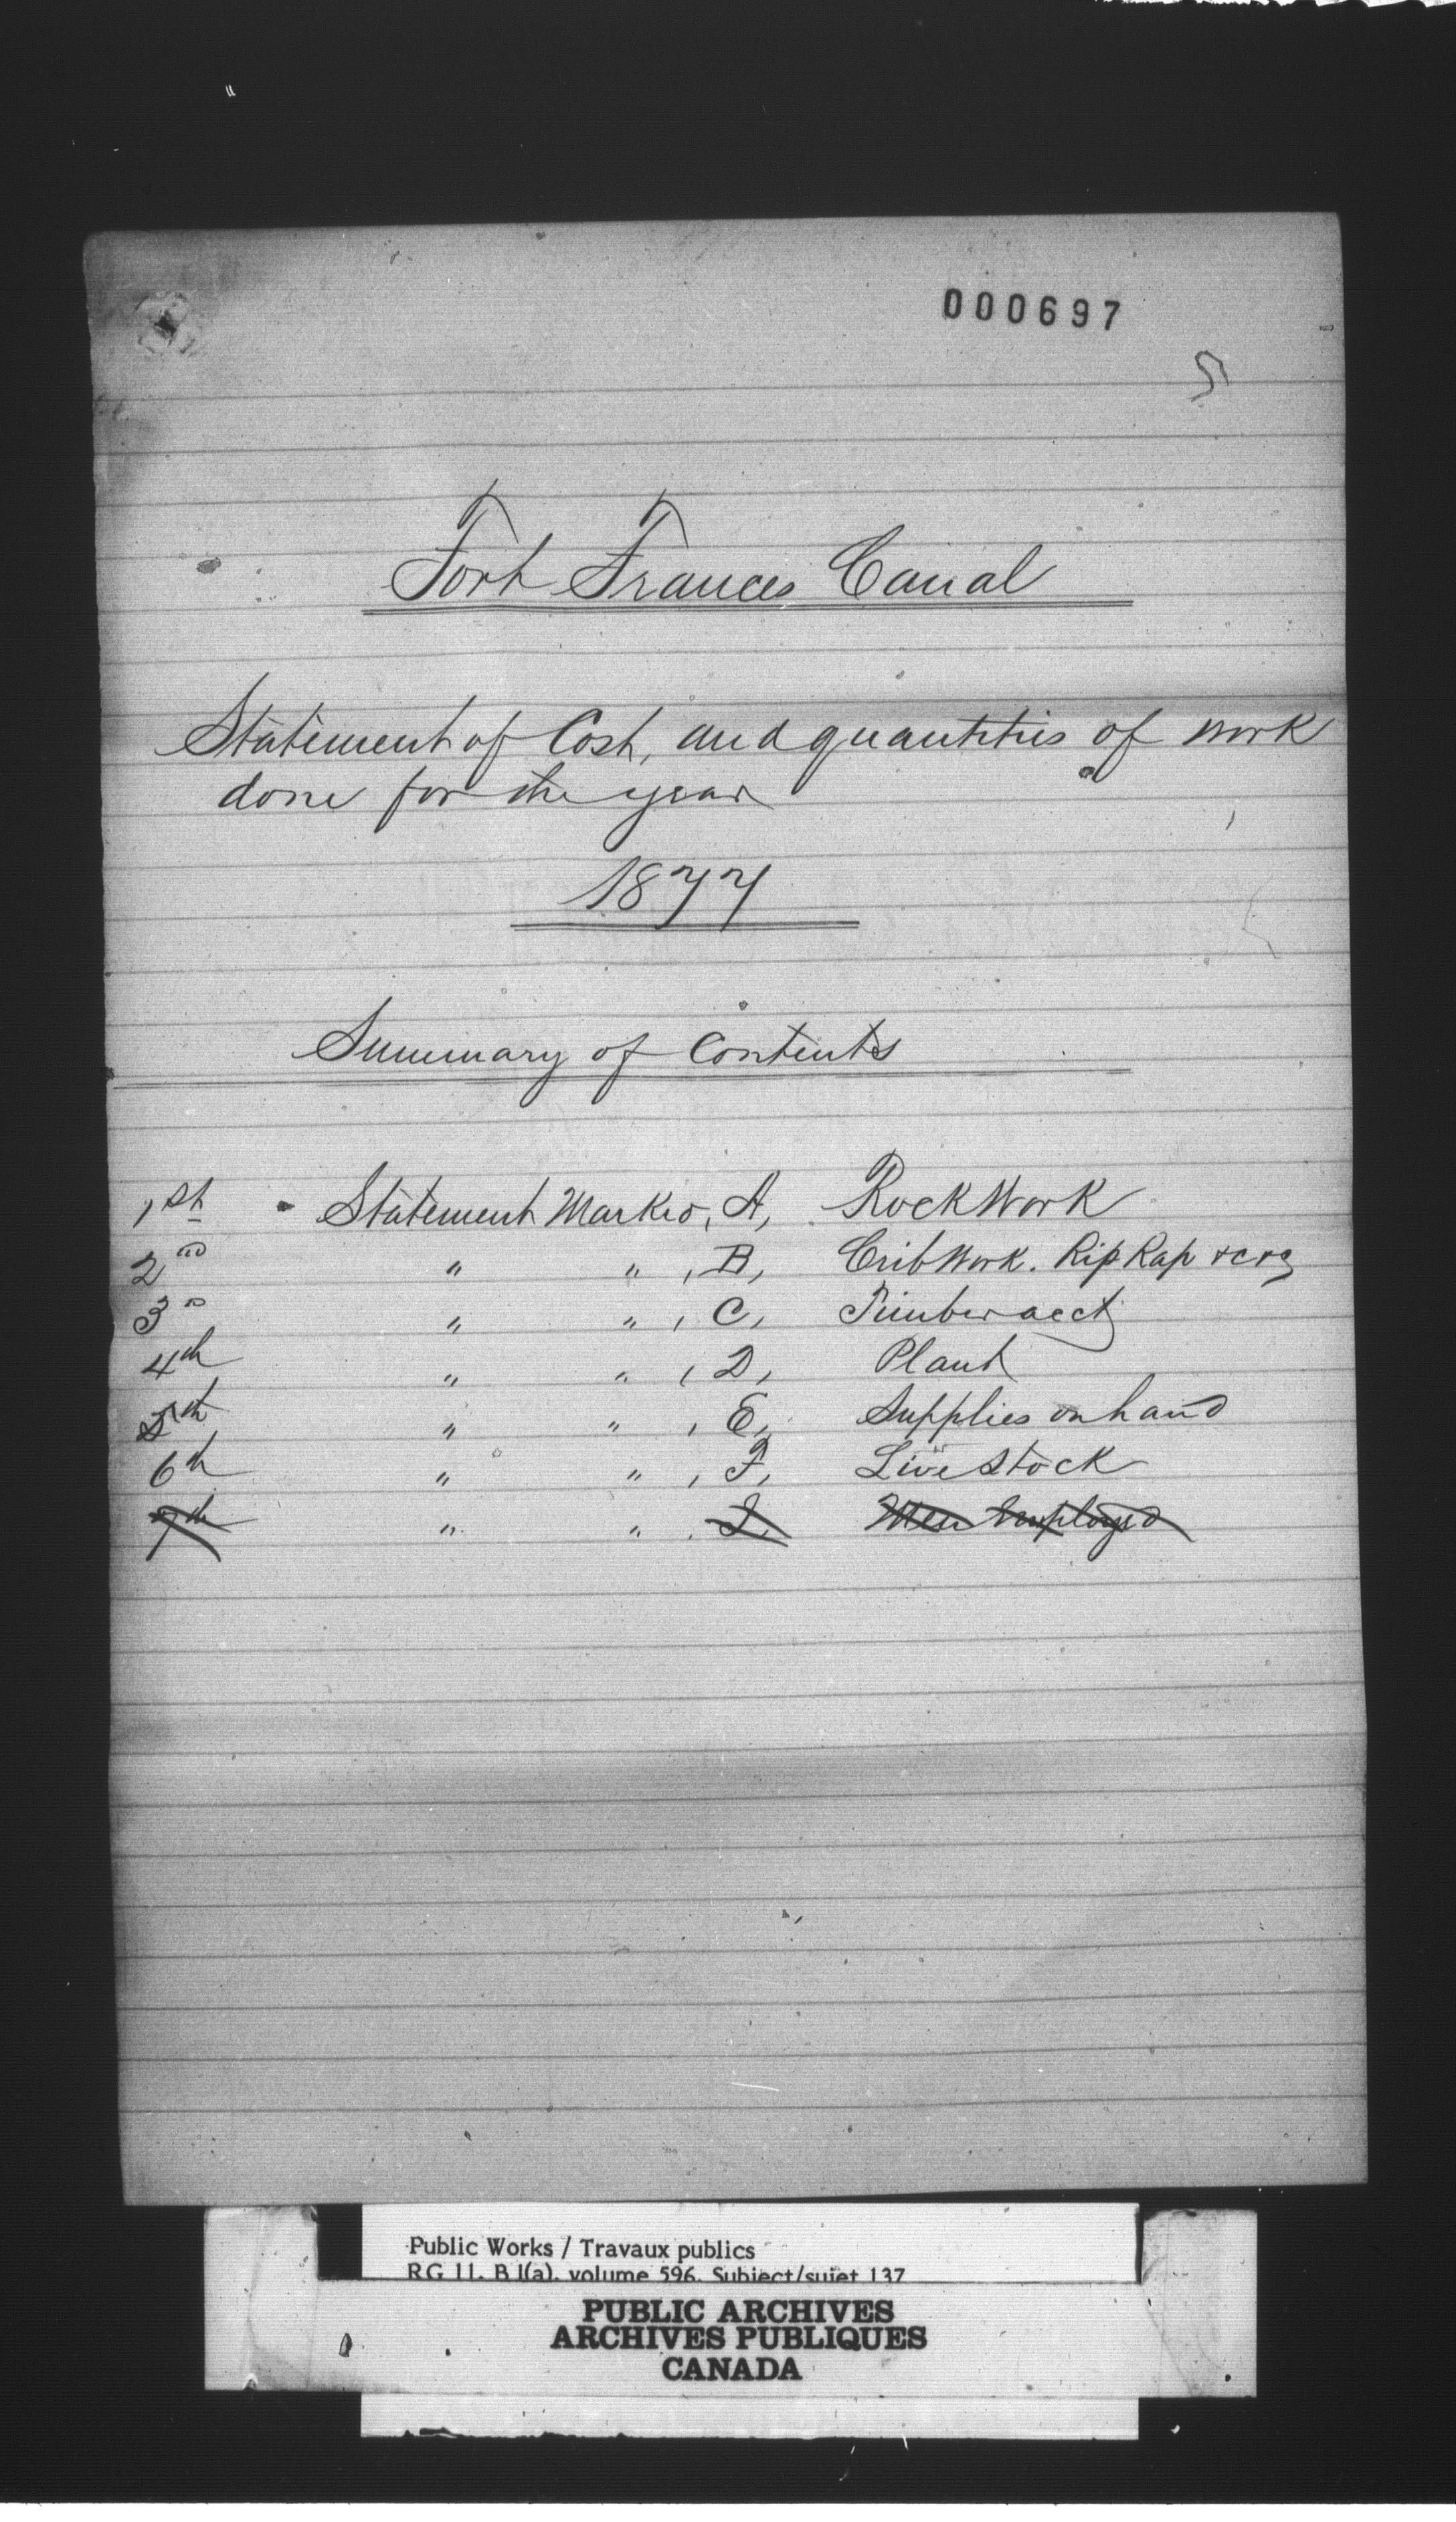 000697
5
Fort Frances Canal
Statement of Cost, and quantities of work
done for the year
1877
Summary of Contents
1st Statement Marked, A, Rock Work
2nd " " , B, Crib Work. Rip Rap &c &c
3d " " , C, Timber acct
4th " " , D, Plant
5th " " , E, Supplies on hand
6th " " , F, Live Stock
7th " " . Men Employed
Public Works / Travaux publics
RG 11, B1(a), volume 596, Subject/sujet 137
PUBLIC ARCHIVES
ARCHIVES PUBLIQUES
CANADA